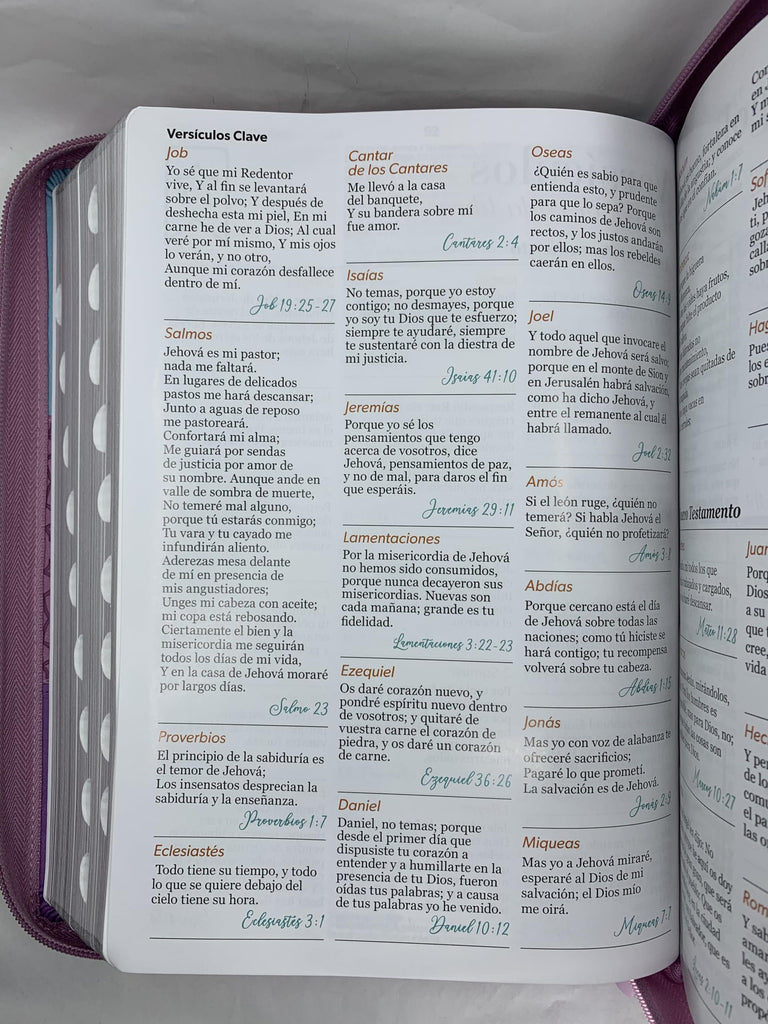 Versículos Clave
Job
Yo sé que mi Redentor
vive, Y al fin se levantará
sobre el polvo; Y después de
deshecha esta mi piel, En mi
carne he de ver a Dios; Al cual
veré por mí mismo, Y mis ojos
lo verán, y no otro,
Aunque mi corazón desfallece
dentro de mí.
Job 19:25-27
Salmos
Jehová es mi pastor;
nada me faltará.
En lugares de delicados
pastos me hará descansar;
Junto a aguas de reposo
me pastoreará.
Confortará mi alma;
Me guiará por sendas
de justicia por amor de
su nombre. Aunque ande en
valle de sombra de muerte,
No temeré mal alguno,
porque tú estarás conmigo;
Tu vara y tu cayado me
infundirán aliento.
Aderezas mesa delante
de mí en presencia de
mis angustiadores;
Unges mi cabeza con aceite;
mi copa está rebosando.
Ciertamente el bien y la
misericordia me seguirán
todos los días de mi vida,
Y en la casa de Jehová moraré
por largos días.
Salmo 23
Proverbios
El principio de la sabiduría es
el temor de Jehová;
Los insensatos desprecian la
sabiduría y la enseñanza.
Proverbios 1:7
Eclesiastés
Todo tiene su tiempo, y todo
lo que se quiere debajo del
cielo tiene su hora.
Eclesiastés 3:1
Cantar
de los Cantares
Me llevó a la casa
del banquete,
Y su bandera sobre mí
fue amor.
Cantares 2:4
Isaías
No temas, porque yo estoy
contigo; no desmayes, porque
yo soy tu Dios que te esfuerzo;
siempre te ayudaré, siempre
te sustentaré con la diestra de
mi justicia.
Isaías 41:10
Jeremías
Porque yo sé los
pensamientos que tengo
acerca de vosotros, dice
Jehová, pensamientos de paz,
y no de mal, para daros el fin
que esperáis.
Jeremías 29:11
Lamentaciones
Por la misericordia de Jehová
no hemos sido consumidos,
porque nunca decayeron sus
misericordias. Nuevas son
cada mañana; grande es tu
fidelidad.
Lamentaciones 3:22-23
Ezequiel
Os daré corazón nuevo, y
pondré espíritu nuevo dentro
de vosotros; y quitaré de
vuestra carne el corazón de
piedra, y os daré un corazón
de carne.
Ezequiel 36:26
Daniel
Daniel, no temas; porque
desde el primer día que
dispusiste tu corazón a
entender y a humillarte en la
presencia de tu Dios, fueron
oídas tus palabras; y a causa
de tus palabras yo he venido.
Daniel 10:12
Oseas
¿Quién es sabio para que
entienda esto, y prudente
para que lo sepa? Porque
los caminos de Jehová son
rectos, y los justos andarán
por ellos; mas los rebeldes
caerán en ellos.
Oseas 14:9
Joel
Y todo aquel que invocare el
nombre de Jehová será salvo;
porque en el monte de Sion y
en Jerusalén habrá salvación,
como ha dicho Jehová, y
entre el remanente al cual él
habrá llamado.
Joel 2:32
Amós
Si el león ruge, ¿quién no
temerá? Si habla Jehová el
Señor, ¿quién no profetizará?
Amós 3:8
Abdías
Porque cercano está el día
de Jehová sobre todas las
naciones; como tú hiciste se
hará contigo; tu recompensa
volverá sobre tu cabeza.
Abdías 1:15
Jonás
Mas yo con voz de alabanza te
ofreceré sacrificios;
Pagaré lo que prometí.
La salvación es de Jehová.
Jonás 2:9
Miqueas
Mas yo a Jehová miraré,
esperaré al Dios de mi
salvación; el Dios mío
me oirá.
Miqueas 7:7
fortaleza en
y conoce
confían.
Nahúm 1:7
higuera
haya frutos,
el producto
quitadas de
vacas en
Testamento
todos los que
y cargados,
descansar.
Mateo 11:28
mirándolos,
hombres es
para Dios, no;
cosas son
Marcos 10:27
dijo: No
aquí os doy
que será
Que os
la ciudad
que es
10-11